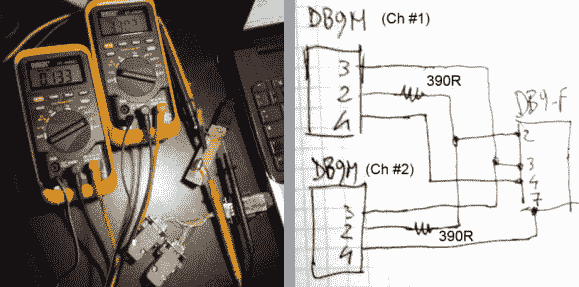 DB9M (Ch #1)
3
390R
2
4
DB9-F
2
3
4
7
DB9M (Ch #2)
3
2
390R
4